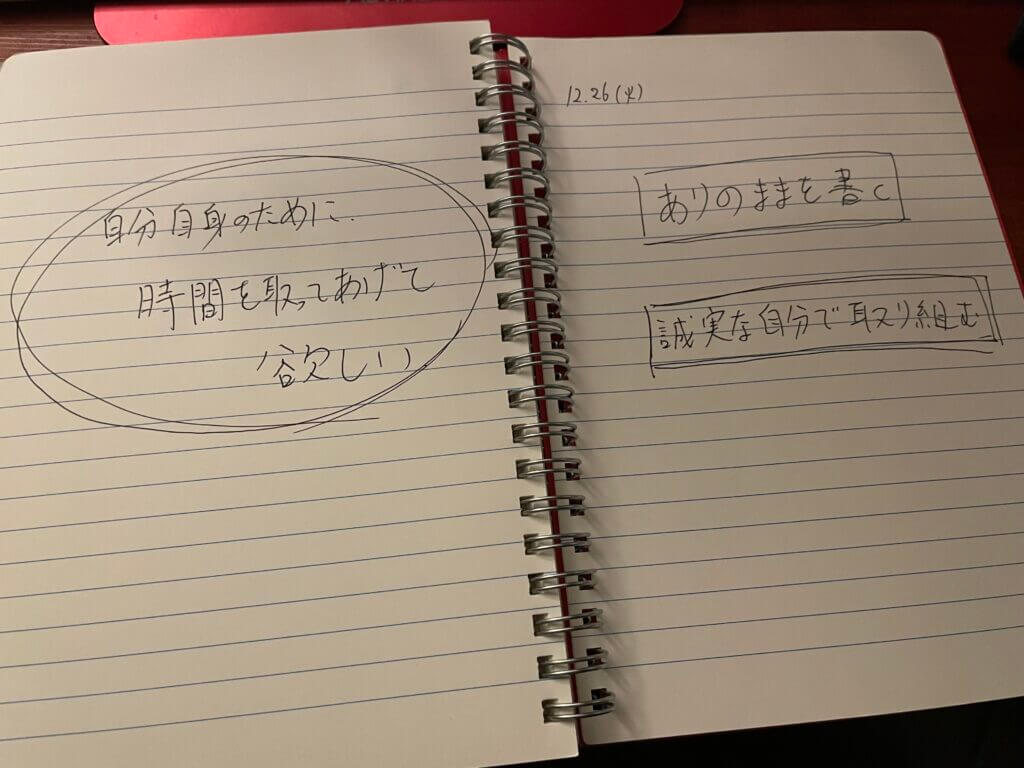 自分自身のために、
時間を取ってあげて
欲しい
12.26(火)
ありのままを書く
誠実な自分で取り組む